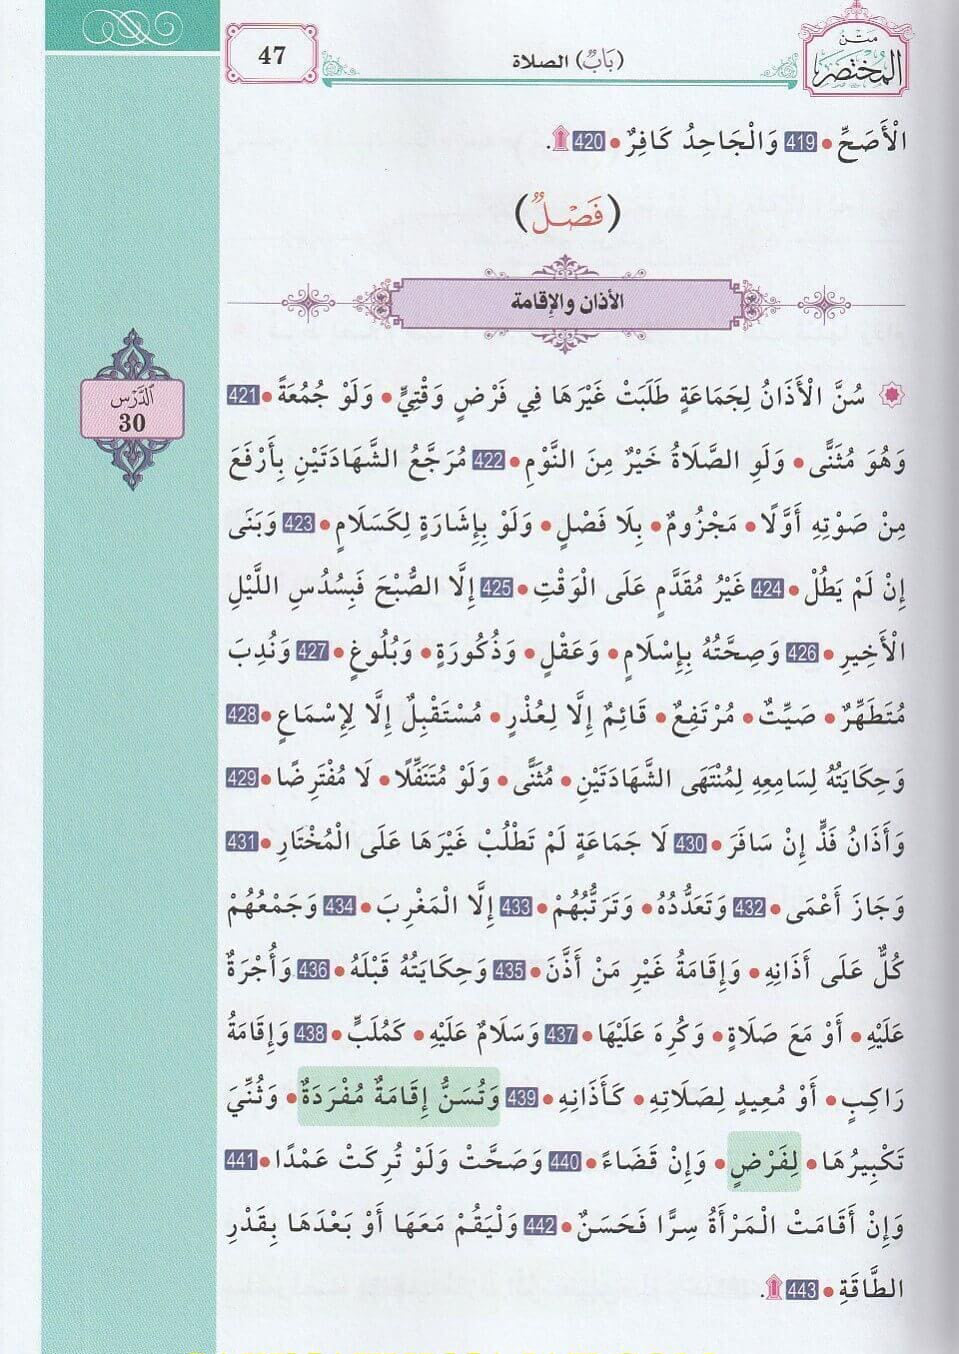 متن
المختصر
(بَابٌ) الصلاة
47
الْأَصَحِّ • 419 وَالْجَاحِدُ كَافِرٌ • 420 .
(فَصْلٌ)
الأذان والإقامة
الدَّرْس
30
سُنَّ الْأَذَانُ لِجَمَاعَةٍ طَلَبَتْ غَيْرَهَا فِي فَرْضٍ وَقْتِيٍّ • وَلَوْ جُمُعَةً • 421
وَهُوَ مُثَنًّى • وَلَوِ الصَّلَاةُ خَيْرٌ مِنَ النَّوْمِ • 422 مُرَجَّعُ الشَّهَادَتَيْنِ بِأَرْفَعَ
مِنْ صَوْتِهِ أَوَّلًا • مَجْزُومٌ • بِلَا فَصْلٍ • وَلَوْ بِإِشَارَةٍ لِكَسَلَامٍ • 423 وَبَنَى
إِنْ لَمْ يَطُلْ • 424 غَيْرُ مُقَدَّمٍ عَلَى الْوَقْتِ • 425 إِلَّا الصُّبْحَ فَبِسُدُسِ اللَّيْلِ
الْأَخِيرِ • 426 وَصِحَّتُهُ بِإِسْلَامٍ • وَعَقْلٍ • وَذُكُورَةٍ • وَبُلُوغٍ • 427 وَنُدِبَ
مُتَطَهِّرٌ • صَيِّتٌ • مُرْتَفِعٌ • قَائِمٌ إِلَّا لِعُذْرٍ • مُسْتَقْبِلٌ إِلَّا لِإِسْمَاعٍ • 428
وَحِكَايَتُهُ لِسَامِعِهِ لِمُنْتَهَى الشَّهَادَتَيْنِ • مُثَنًّى • وَلَوْ مُتَنَفِّلًا • لَا مُفْتَرِضًا • 429
وَأَذَانُ فَذٍّ إِنْ سَافَرَ • 430 لَا جَمَاعَةٍ لَمْ تَطْلُبْ غَيْرَهَا عَلَى الْمُخْتَارِ • 431
وَجَازَ أَعْمَى • 432 وَتَعَدُّدُهُ • وَتَرَتُّبُهُمْ • 433 إِلَّا الْمَغْرِبَ • 434 وَجَمْعُهُمْ
كُلٌّ عَلَى أَذَانِهِ • وَإِقَامَةُ غَيْرِ مَنْ أَذَّنَ • 435 وَحِكَايَتُهُ قَبْلَهُ • 436 وَأُجْرَةٌ
عَلَيْهِ • أَوْ مَعَ صَلَاةٍ • وَكُرِهَ عَلَيْهَا • 437 وَسَلَامٌ عَلَيْهِ • كَمُلَبٍّ • 438 وَإِقَامَةُ
رَاكِبٍ • أَوْ مُعِيدٍ لِصَلَاتِهِ • كَأَذَانِهِ • 439 وَتُسَنُّ إِقَامَةٌ مُفْرَدَةٌ • وَثُنِّيَ
تَكْبِيرُهَا • لِفَرْضٍ • وَإِنْ قَضَاءً • 440 وَصَحَّتْ وَلَوْ تُرِكَتْ عَمْدًا • 441
وَإِنْ أَقَامَتْ الْمَرْأَةُ سِرًّا فَحَسَنٌ • 442 وَلْيَقُمْ مَعَهَا أَوْ بَعْدَهَا بِقَدْرِ
الطَّاقَةِ • 443 .